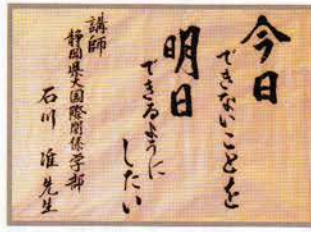 今日
できないことを
明日
できるように
したい
講師
静岡県大国際関係学部
石川 准 先生